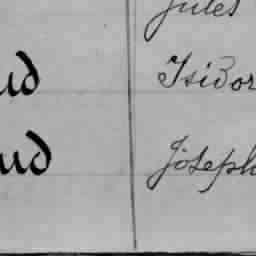 Jules
ud Isidor
ud Joseph